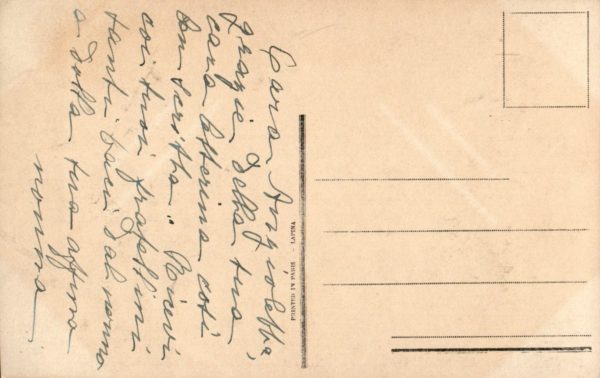 Cara Angioletta,
Grazie della tua
cara letterina così
ben scritta. Ricevi
coi tuoi fratellini
tanti baci dal nonno
e dalla tua affma
nonna.
PRINTED IN PARIS - LAPINA